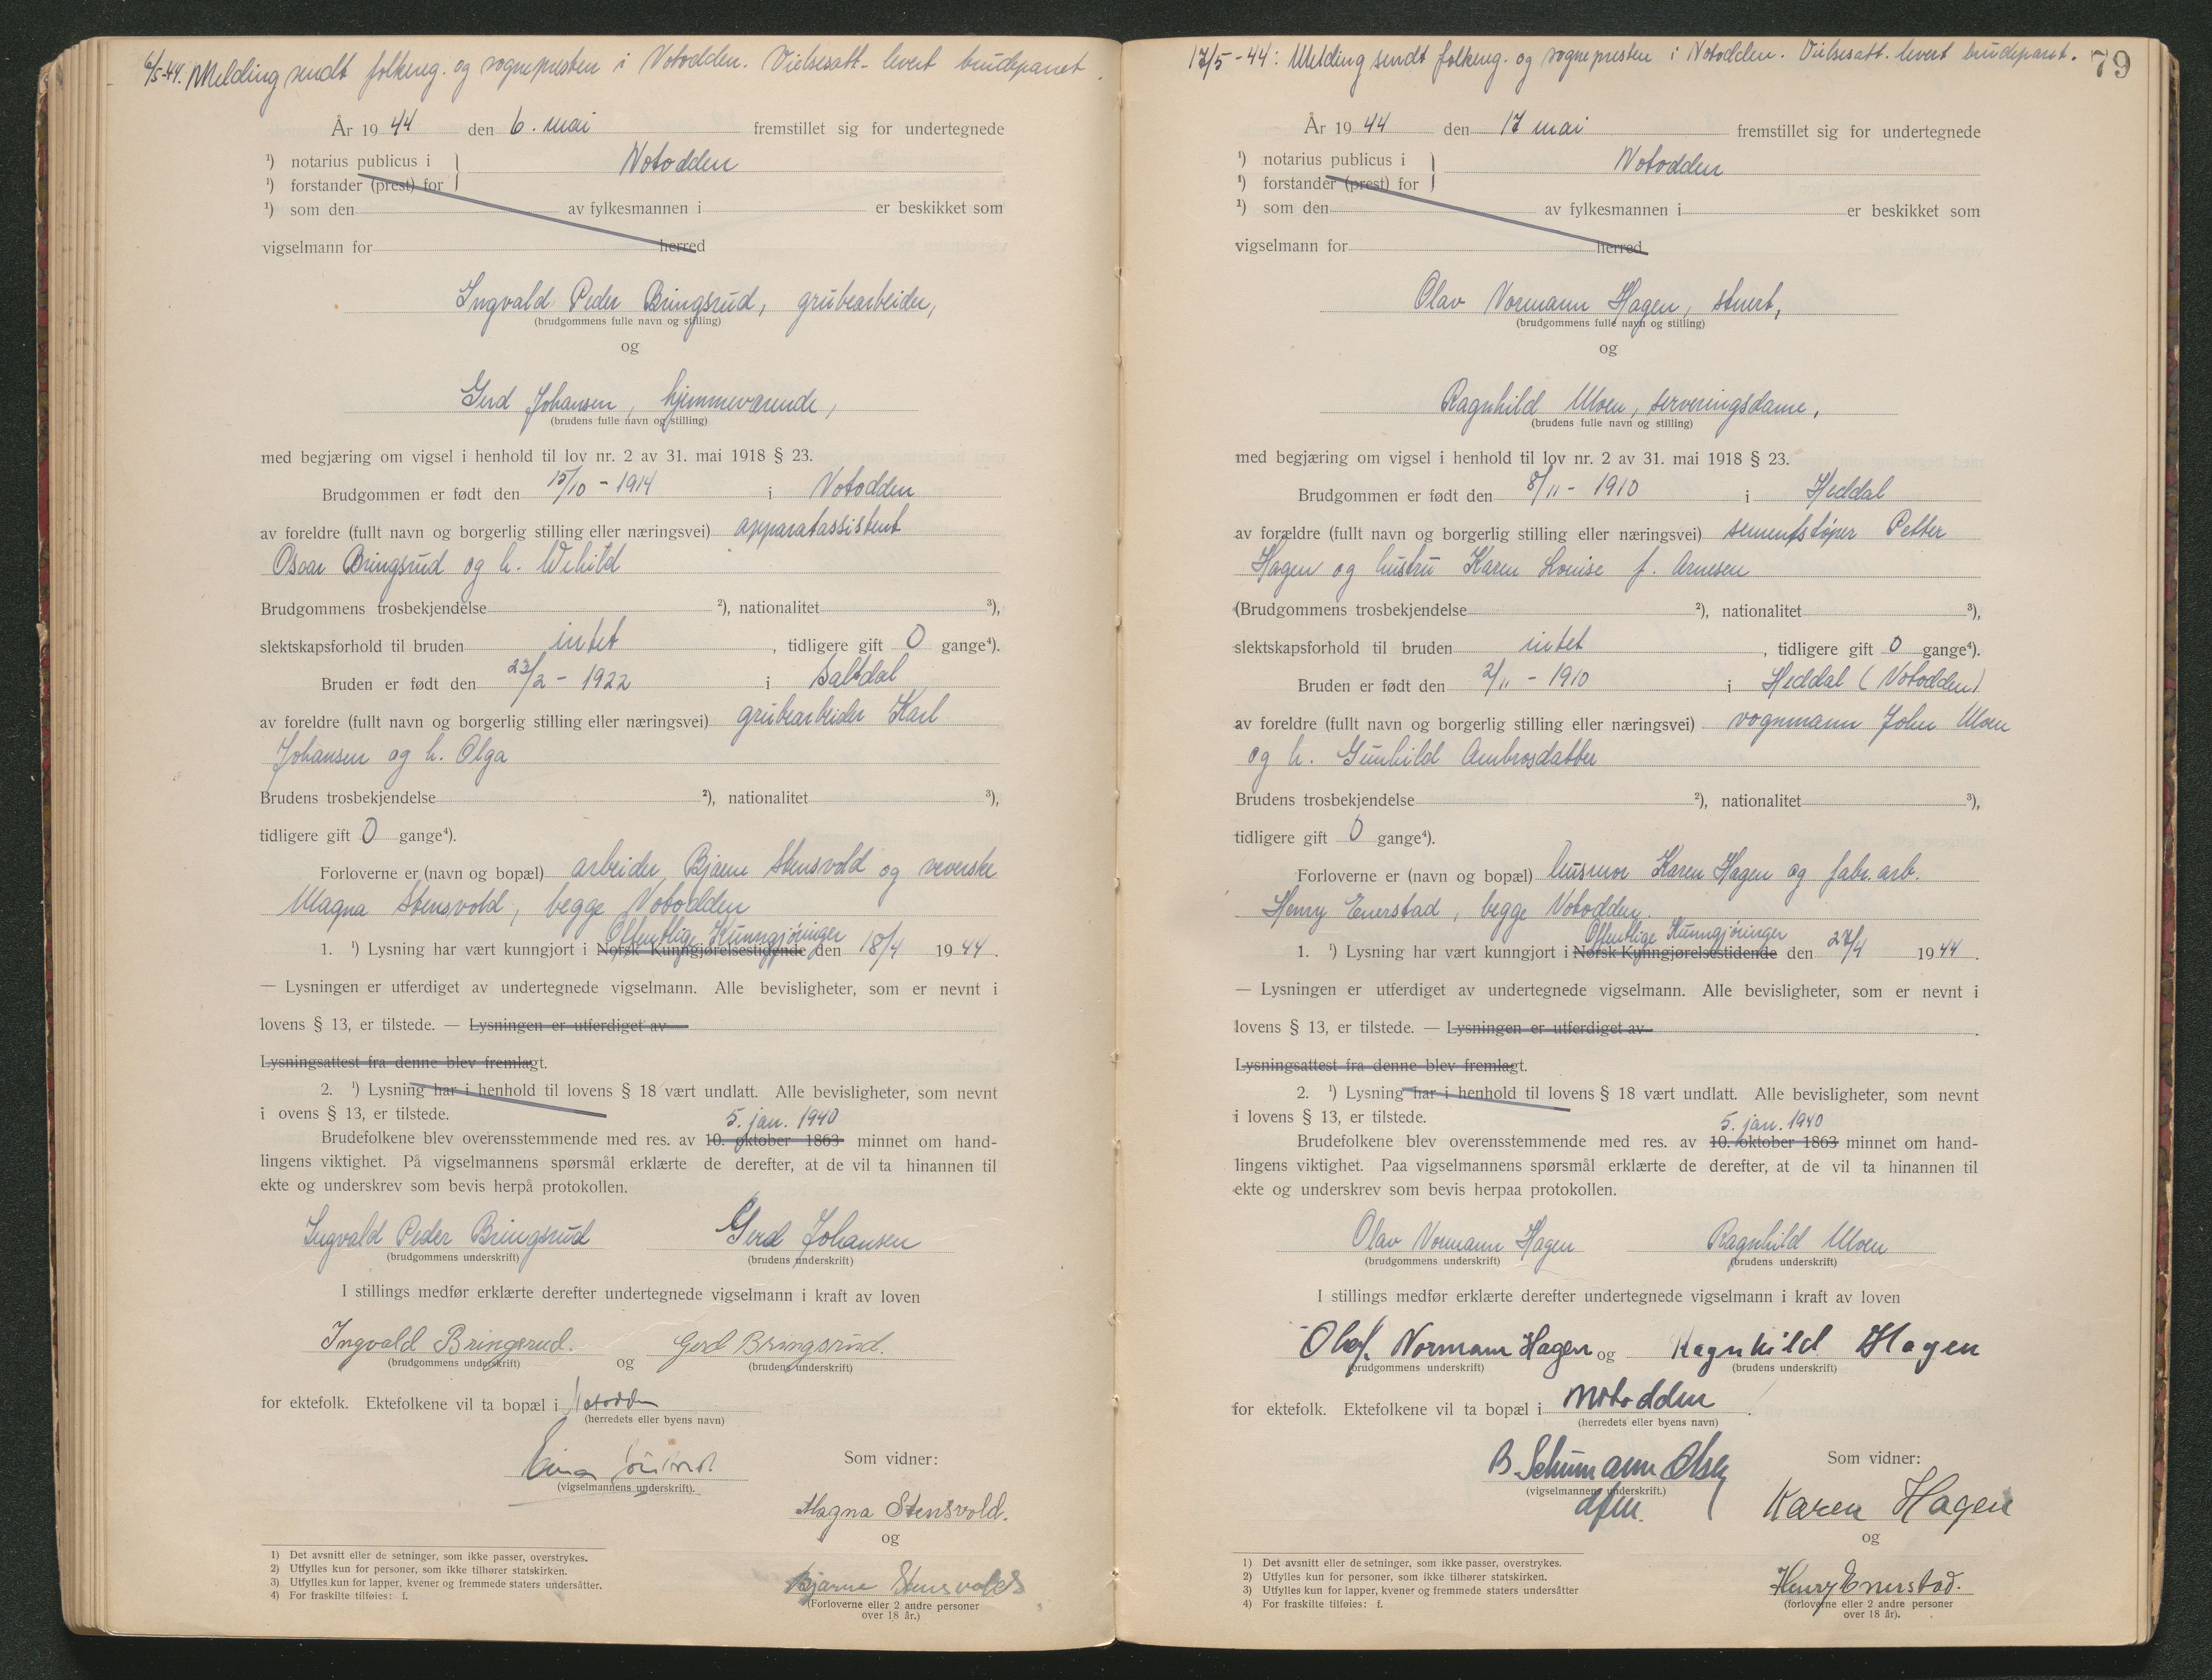 6/5-44. Melding sendt folkereg. og sognepresten i Notodden. Vielsesatt. levert brudeparet.
År 19 44 den 6. mai fremstillet sig for undertegnede
¹) notarius publicus i
Notodden
¹) forstander (prest) for
¹) som den av fylkesmannen i er beskikket som
vigselmann for herred
Ingvald Peder Bringsrud, grubearbeider,
(brudgommens fulle navn og stilling)
og
Gerd Johansen, hjemmeværende,
(brudens fulle navn og stilling)
med begjæring om vigsel i henhold til lov nr. 2 av 31. mai 1918 § 23.
Brudgommen er født den 15/10 - 1914 i Notodden
av foreldre (fullt navn og borgerlig stilling eller næringsvei) apparatassistent
Oscar Bringsrud og h.
Brudgommens trosbekjendelse ²), nationalitet ³),
slektskapsforhold til bruden intet, tidligere gift 0 gange⁴).
Bruden er født den 23/2 - 1922 i Saltdal
av foreldre (fullt navn og borgerlig stilling eller næringsvei) grubearbeider Karl
Johansen og h. Olga
Brudens trosbekjendelse ²), nationalitet ³),
tidligere gift 0 gange⁴).
Forloverne er (navn og bopæl) arbeider Bjarne Stensvold og veverske
Magna Stensvold, begge Notodden
Offentlige Kunngjøringer
1. ¹) Lysning har vært kunngjort i Norsk Kunngjørelsestidende den 18/4 19 44.
— Lysningen er utferdiget av undertegnede vigselmann. Alle bevisligheter, som er nevnt i
lovens § 13, er tilstede. — Lysningen er utferdiget av
Lysningsattest fra denne blev fremlagt.
2. ¹) Lysning har i henhold til lovens § 18 vært undlatt. Alle bevisligheter, som nevnt
i ovens § 13, er tilstede.
5. jan. 1940
Brudefolkene blev overensstemmende med res. av 10. oktober 1863 minnet om hand-
lingens viktighet. På vigselmannens spørsmål erklærte de derefter, at de vil ta hinannen til
ekte og underskrev som bevis herpå protokollen.
Ingvald Peder Bringsrud Gerd Johansen
(brudgommens underskrift) (brudens underskrift)
I stillings medfør erklærte derefter undertegnede vigselmann i kraft av loven
Ingvald Bringsrud. og Gerd Bringsrud.
(brudgommens underskrift) (brudens underskrift)
for ektefolk. Ektefolkene vil ta bopæl i Notodden
(herredets eller byens navn)
Som vidner:
(vigselmannens underskrift).
Magna Stensvold.
og
Bjarne Stensvold
(Forloverne eller 2 andre personer
over 18 år.)
1) Det avsnitt eller de setninger, som ikke passer, overstrykes.
2) Utfylles kun for personer, som ikke tilhører statskirken.
3) Utfylles kun for lapper, kvener og fremmede staters undersåtter.
4) For fraskilte tilføies: f.
17/5-44: Melding sendt folkereg. og sognepresten i Notodden. Vielsesatt. levert brudeparet.
79
År 19 44 den 17 mai fremstillet sig for undertegnede
¹) notarius publicus i
Notodden
¹) forstander (prest) for
¹) som den av fylkesmannen i er beskikket som
vigselmann for herred
Olav Normann Hagen, stuert,
(brudgommens fulle navn og stilling)
og
Ragnhild Moen, serveringsdame,
(brudens fulle navn og stilling)
med begjæring om vigsel i henhold til lov nr. 2 av 31. mai 1918 § 23.
Brudgommen er født den 8/11 - 1910 i Heddal
av forældre (fullt navn og borgerlig stilling eller næringsvei) sementstøper Petter
Hagen og hustru Karen Louise f. Arnesen
(Brudgommens trosbekjendelse ²), nationalitet ³),
slektskapsforhold til bruden intet, tidligere gift 0 gange⁴).
Bruden er født den 2/11 - 1910 i Heddal (Notodden)
av foreldre (fullt navn og borgerlig stilling eller næringsvei) vognmann John Moen
og h. Gunhild Ambrosdatter
Brudens trosbekjendelse ²), nationalitet ³),
tidligere gift 0 gange⁴).
Forloverne er (navn og bopæl) husmor Karen Hagen og fabr. arb.
Henry Enerstad, begge Notodden.
Offentlige Kunngjøringer
1. ¹) Lysning har vært kunngjort i Norsk Kunngjørelsestidende den 27/4 19 44.
— Lysningen er utferdiget av undertegnede vigselmann. Alle bevisligheter, som er nevnt i
lovens § 13, er tilstede. — Lysningen er utferdiget av .
Lysningsattest fra denne blev fremlagt.
2. ¹) Lysning har i henhold til lovens § 18 vært undlatt. Alle bevisligheter, som nevnt
i lovens § 13, er tilstede.
5. jan. 1940
Brudefolkene blev overensstemmende med res. av 10. oktober 1863 minnet om hand-
lingens viktighet. Paa vigselmannens spørsmål erklærte de derefter, at de vil ta hinannen til
ekte og underskrev som bevis herpaa protokollen.
Olav Normann Hagen Ragnhild Moen
(brudgommens underskrift) (brudens underskrift)
I stillings medfør erklærte derefter undertegnede vigselmann i kraft av loven
Olaf Normann Hagen og Ragnhild Hagen
(brudgommens underskrift) (brudens underskrift)
for ektefolk. Ektefolkene vil ta bopæl i Notodden.
(herredets eller byens navn)
B. Schumann Olsen Som vidner:
(vigselmannens underskrift.)
dfm.
Karen Hagen
og
Henry Enerstad.
(forloverne eller 2 andre personer
over 18 år).
1) Det avsnitt eller de setninger, som ikke passer, overstrykes.
2) Utfylles kun for personer, som ikke tilhører statskirken.
3) Utfylles kun for lapper, kvener og fremmede staters undersåtter
4) For fraskilte tilføies: f.